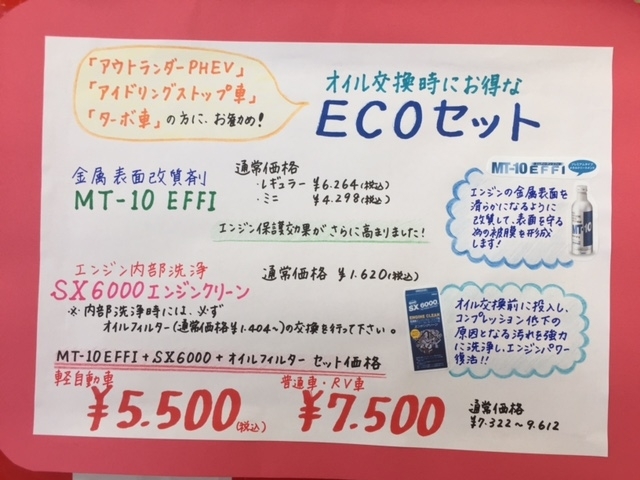 「アウトランダーPHEV」
「アイドリングストップ車」
「ターボ車」の方に、お勧め!
オイル交換時にお得な
ECOセット
金属表面改質剤
MT-10 EFFI
通常価格
・レギュラー ¥6.264(税込)
・ミニ ¥4.298(税込)
エンジン保護効果がさらに高まりました!
MT-10 EFFI
エンジンの金属表面を
滑らかになるように
改質して、表面を守る
為の被膜を形成
します!
MT-10
エンジン内部洗浄
SX6000エンジンクリーン
通常価格 ¥1.620(税込)
※内部洗浄時には、必ず
オイルフィルター(通常価格¥1.404~)の交換を行って下さい。
SX 6000
ENGINE CLEAN
オイル交換前に投入し、
コンプレッション低下の
原因となる汚れを強力
に洗浄し、エンジンパワー
復活!!
MT-10 EFFI+SX6000+オイルフィルター セット価格
軽自動車
¥5.500(税込)
普通車・RV車
¥7.500
通常価格
¥7.322~9.612